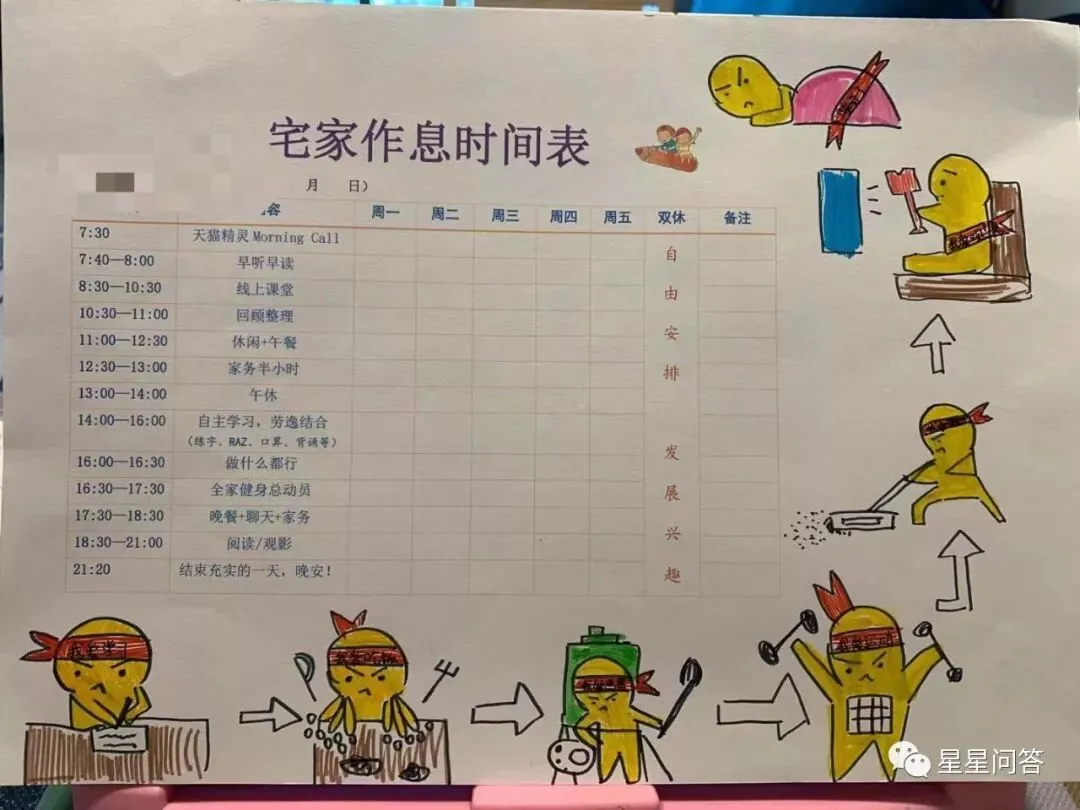 宅家作息时间表
月 日）
容 周一 周二 周三 周四 周五 双休 备注
7:30 天猫精灵 Morning Call
7:40—8:00 早听早读
8:30—10:30 线上课堂
10:30—11:00 回顾整理
11:00—12:30 休闲+午餐
12:30—13:00 家务半小时
13:00—14:00 午休
14:00—16:00 自主学习，劳逸结合
（练字、RAZ、口算、背诵等）
16:00—16:30 做什么都行
16:30—17:30 全家健身总动员
17:30—18:30 晚餐+聊天+家务
18:30—21:00 阅读/观影
21:20 结束充实的一天，晚安！
自由安排
发展兴趣
我要学习
星星问答